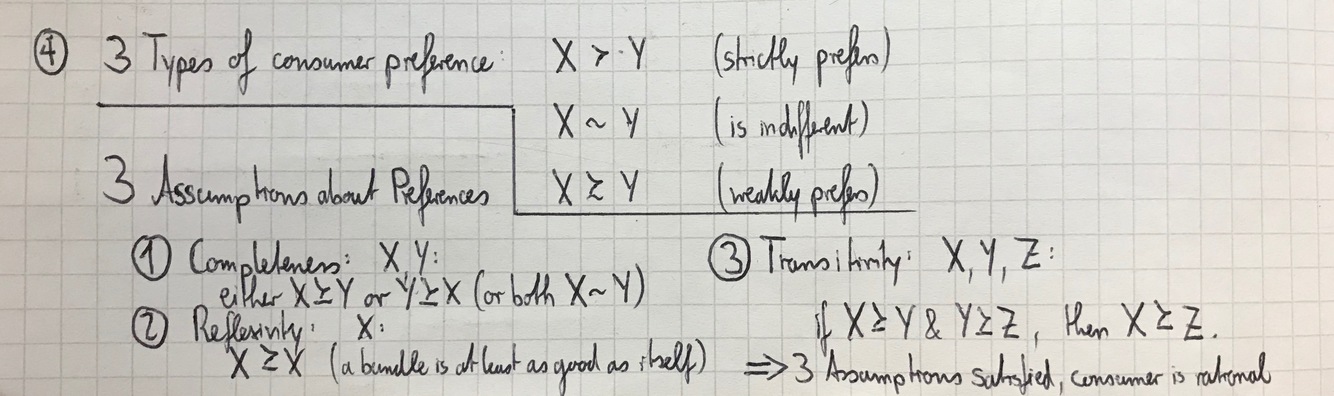 ④ 3 Types of consumer preference: X ≻ Y (strictly prefers)
X ~ Y (is indifferent)
3 Assumptions about Preferences X ≿ Y (weakly prefers)
① Completeness: X, Y:
either X ≿ Y or Y ≿ X (or both X ~ Y)
② Reflexivity: X:
X ≿ X (a bundle is at least as good as itself)
③ Transitivity: X, Y, Z:
if X ≿ Y & Y ≿ Z, then X ≿ Z.
⟹ 3 Assumptions satisfied, consumer is rational